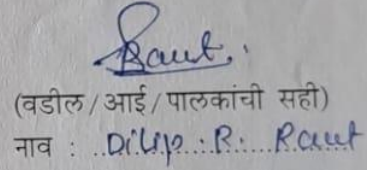 Raut.
(वडील/आई/पालकांची सही)
नाव : Dilip. R. Raut